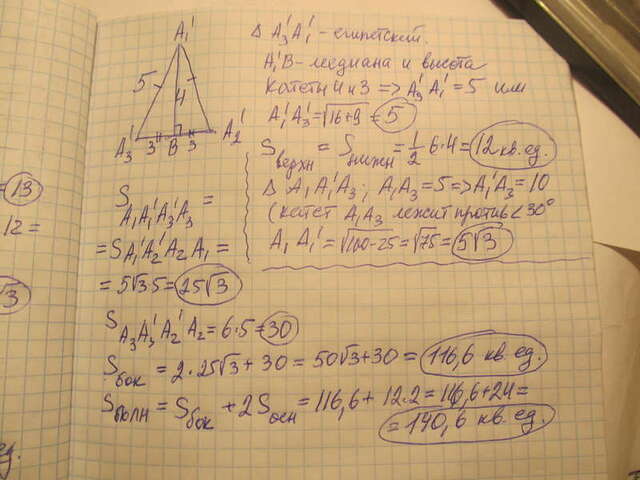 = 13
12 =
√3
ед.
A₁'
5
4
A₃' 3 B 3 A₂'
Δ A₃'A₁' - египетский.
A₁'B - медиана и высота
Катеты 4 и 3 => A₃'A₁' = 5 или
A₁'A₃' = √16+9 = 5
Sверхн = Sнижн = 1/2 6·4 = 12 кв. ед.
Δ A₁A₁'A₃; A₁A₃ = 5 => A₁'A₃ = 10
(катет A₁A₃ лежит против < 30°
A₁A₁' = √100-25 = √75 = 5√3
S A₁A₁'A₃'A₃ =
= S A₁'A₂'A₂A₁ =
= 5√3·5 = 25√3
S A₃A₃'A₂'A₂ = 6·5 = 30
Sбок = 2·25√3 + 30 = 50√3+30 = 116,6 кв. ед.
Sполн = Sбок + 2Sосн = 116,6 + 12·2 = 116,6+24 =
= 140,6 кв. ед.